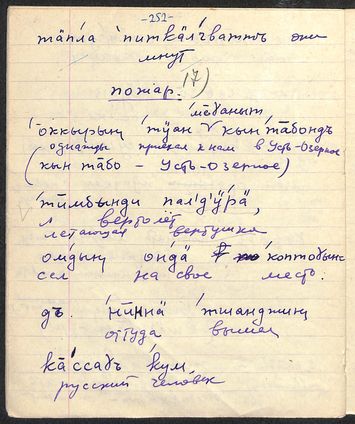 -252-
та̄пла питкӓлгватпоъ эти
минут
17)
пожар.
ме̄ҕаныт
о̄ккырың тӱан кын та̄бондъ
однажды приехал к нам в Усть-Озерное
(кын та̄бо – Усть-Озерное)
ты̄мбынди палдӱрӓ,
вертолёт
летающая вертушка
омдың ондӓ коптоҕын
сел на свое место.
дъ. ны̄ннӓ тшанджиң
оттуда вышел
ка̄ссаҕъ кум,
русский человек